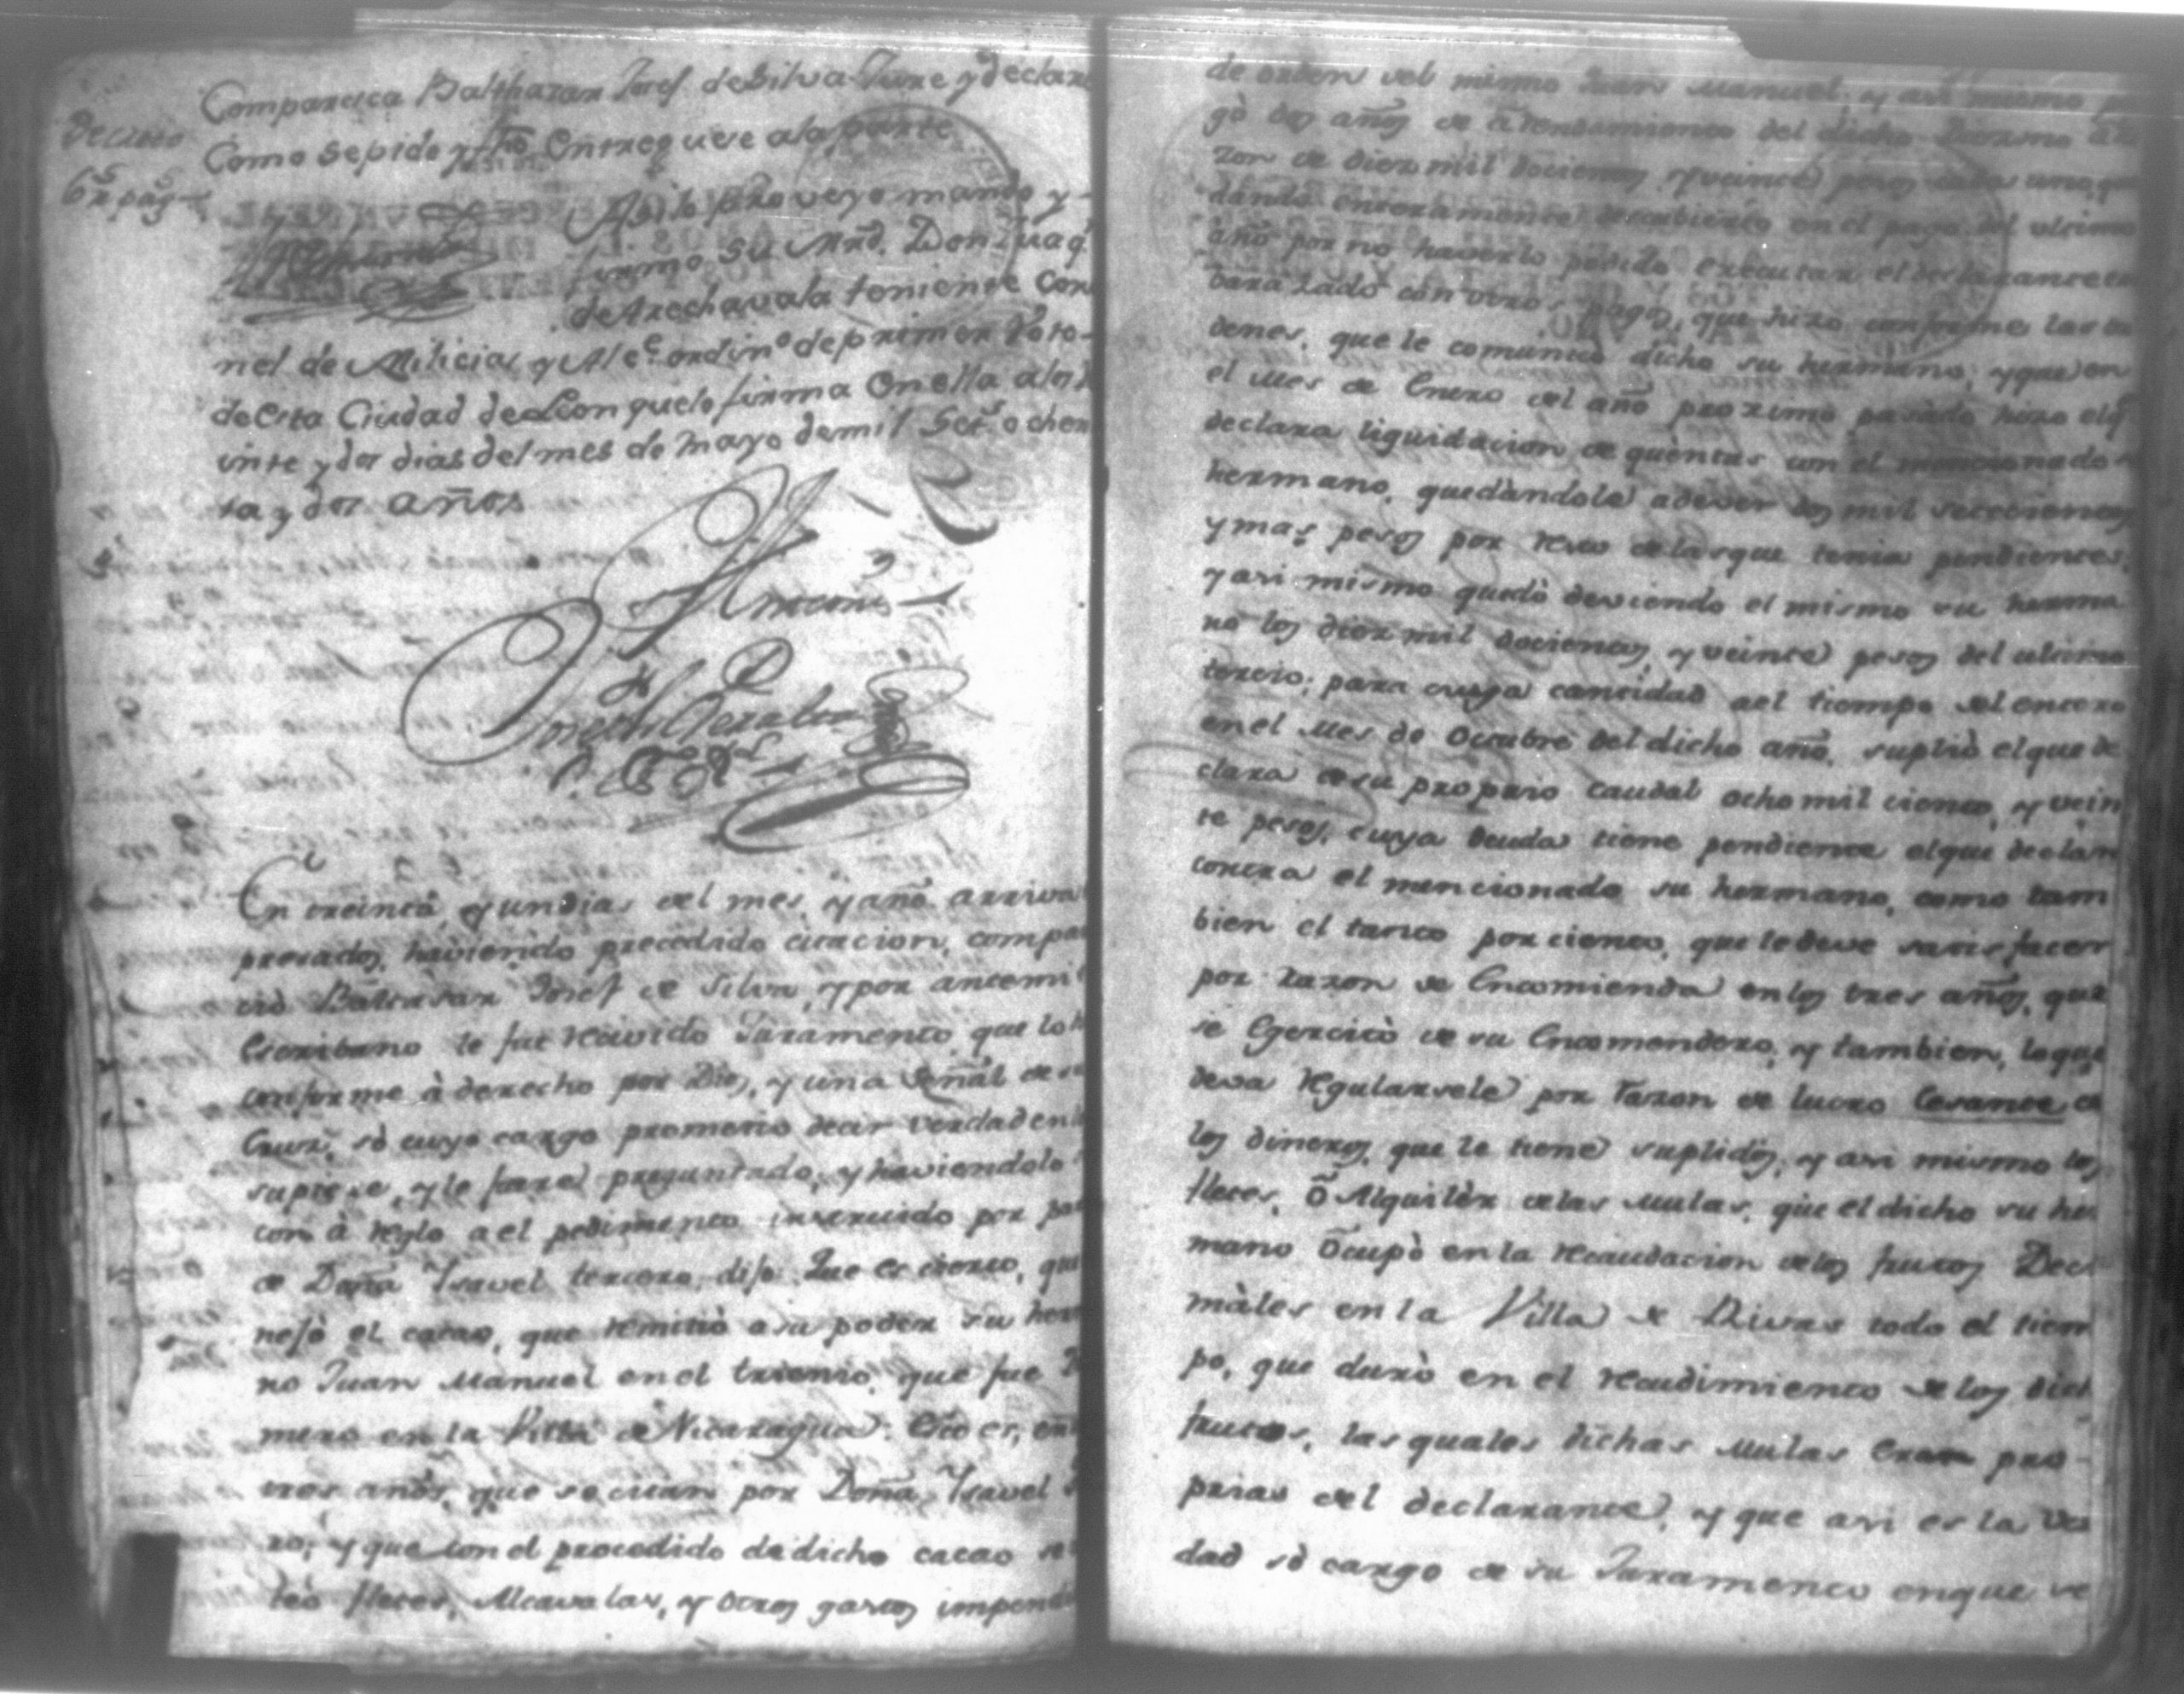 Comparezca Balthazar Josef de Silva Jure y declare
Como se pide y fho Entreguese ala parte
Decreto
6 r.s pag.s
Asi lo proveyo mando y
firmo su Mrd. Don Juaq.n
de Arechavala teniente Coro
nel de Milicias y Alc.e ordin.o de primer Voto
de esta Ciudad de Leon que lo firma En ella alos
vinte y dos dias del mes de Mayo demil Set.s ochen
ta y dos años
Antemi
Joseph
En treinta, y un dias del mes, y año arriva
presados, haviendo precedido citacion, compa
ció Baltasar Josef de Silva, y por antemi
Escribano le fue recivido Juramento, que lo h
conforme à derecho por Dios, y una Señal de su
Cruz, só cuyo cargo prometio decir verdad en lo
supiese, y le fuere preguntado, y haviendolo
con à reglo a el pedimento instruido por par
de Doña Ysavel tercero, dijo Que es cierto, que
nejò el cacao, que remitiò a su poder su herm
no Juan Manuel en el trienio, que fue
mero en la Villa de Nicaragua: Esto es, en
tres años, que se citan por Doña Ysavel
ro; y que con el procedido de dicho cacao
teò fletes, Alcavalas, y otros gastos impend
de orden del mismo Juan Manuel, y asi mismo pa
gò dos años de arrendamiento del dicho Diezmo a ra
zon de diez mil docientos y veinte pesos cada uno, que
dando enteramente descubierto en el pago del ultimo
año por no haverlo podido executar el declarante
barazado con otros pagos, que hizo conforme las or
denes, que le comunicó dicho su hermano; y que en
el Mes de Enero del año proximo pasado hizo elq.e
declara liquidacion de quentas con el mencionado
hermano, quedàndole a dever dos mil setecientos
y mas pesos por resto de las que tenia pendientes,
y asi mismo quedò deviendo el mismo su herma
no los diez mil docientos, y veinte pesos del ultimo
tercio; para cuya cantidad ael tiempo del entero
en el Mes de Octubre del dicho año, supliò el que de
clara de su proprio caudal ocho mil ciento, y vein
te pesos, cuya deuda tiene pendiente el que declara
contra el mencionado su hermano, como tam
bien el tanto por ciento, que le deve satisfacer
por razon de Encomienda en los tres años, que
se Egercitò de su Encomendero, y tambien, lo que
deva regularsele por razon de lucro Cesante de
los dineros, que le tiene suplidos, y asi mismo los
fletes, ò Alquilèr delas Mulas, que el dicho su her
mano Ocupò en la recaudacion delos frutos Dec
màles en la Villa de Rivas todo el tiem
po, que durò en el recudimiento de los dich
frutos, las quales dichas Mulas Eran pro
prias del declarante, y que asi es la ver
dad só cargo de su Juramento en que se